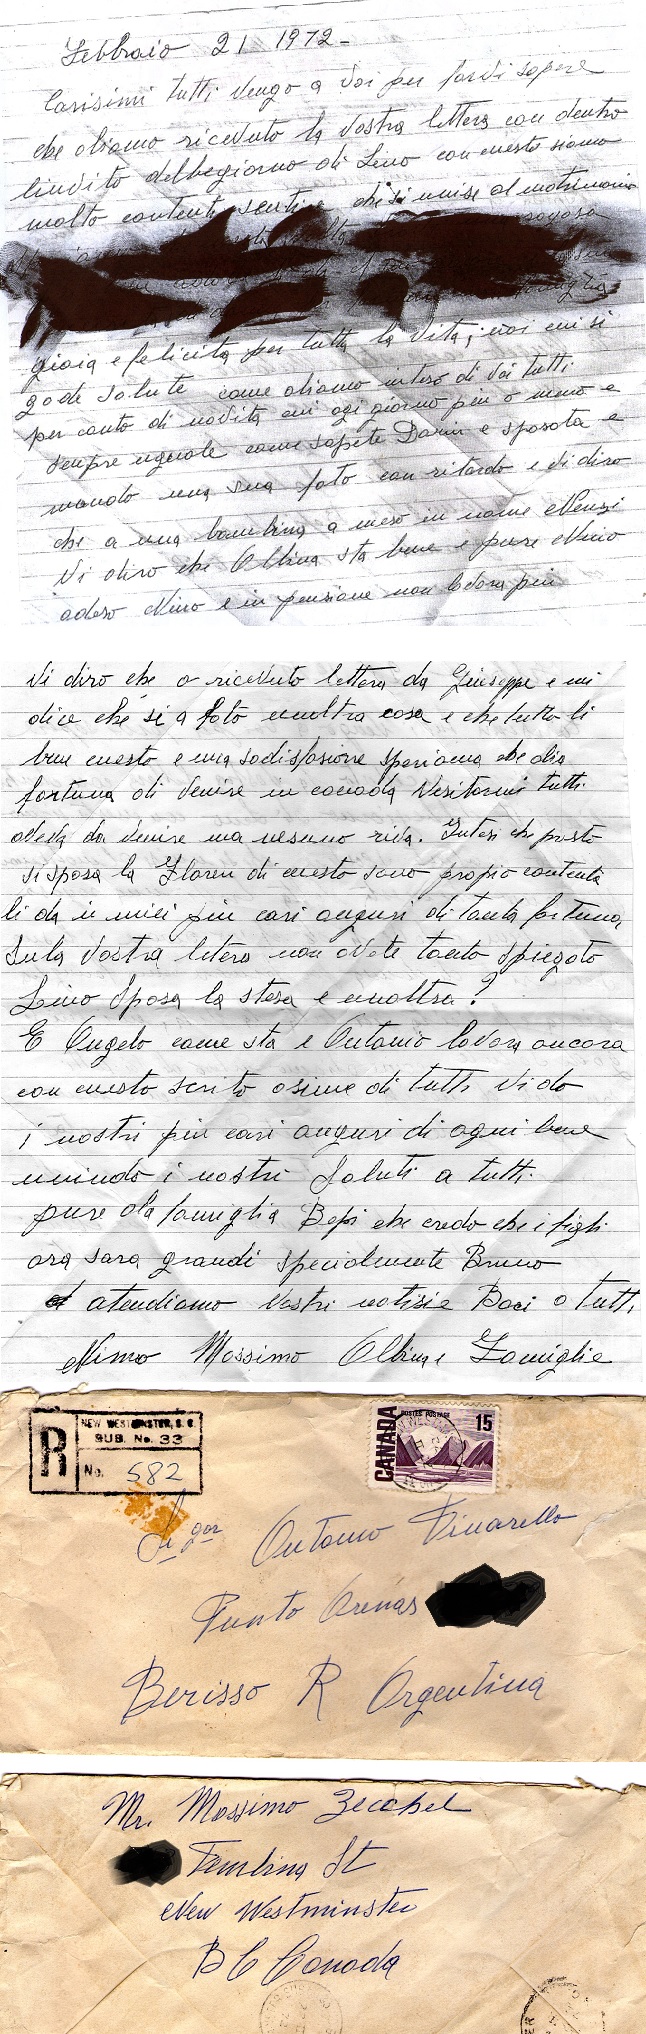 Febbraio 21 1972-
Carisimi tutti vengo a voi per farvi sapere
che abiamo ricevuto la vostra lettera con dentro
linvito delbegiorno di Lino con cuesto siamo
molto contenti sentire che si unise al matrimonio
famiglia
gioia e felicita per tutta la vita, noi cui si
gode salute come abiamo inteso di voi tutti
per conto di novita cui ogi giorno piu o meno e
senpre uguale come sapete Darin e sposata e
mando una sua foto con ritardo e vi diro
che a una bambina a meso in nome Nensi
Vi diro che Albina sta bene e pure Nino
adeso Nino e in pensione non lavora piu
Vi diro che o ricevuto lettera da Giuseppe e mi
dice che si a fato unaltra casa e che tutto li
bene cuesto e una sodisfasione speriamo che abia
fortuna di venire in canada Visitarmi tutti
deva da venire ma nesuno riva. Intesi che presto
si sposa la Floren di cuesto sono propio contenta
li da in miei piu cari auguri di tanta fortuna,
Sula vostra letera non avete tanto spiegato
Lino sposa la stesa e unaltra?
E Angelo come sta e Antonio lavora ancora
con cuesto scrito asieme di tutti vi do
i nostri piu cari auguri di ogni bene
unindo i nostri Saluti a tutti
pure ala famiglia Bepi che credo che i figli
ora sara grandi specialmente Bruno
atendiamo vostri notisie Baci a tutti
Nino Massimo Albina e Famiglie
R
NEW WESTMINSTER, B. C.
SUB. No. 33
No. 582
CANADA
POSTES POSTAGE
15
Sigor Antonio Vinarello
Punto Arenas
Berisso R Argentina
Mr. Massimo Zecchel
St
New Westminster
BC Canada